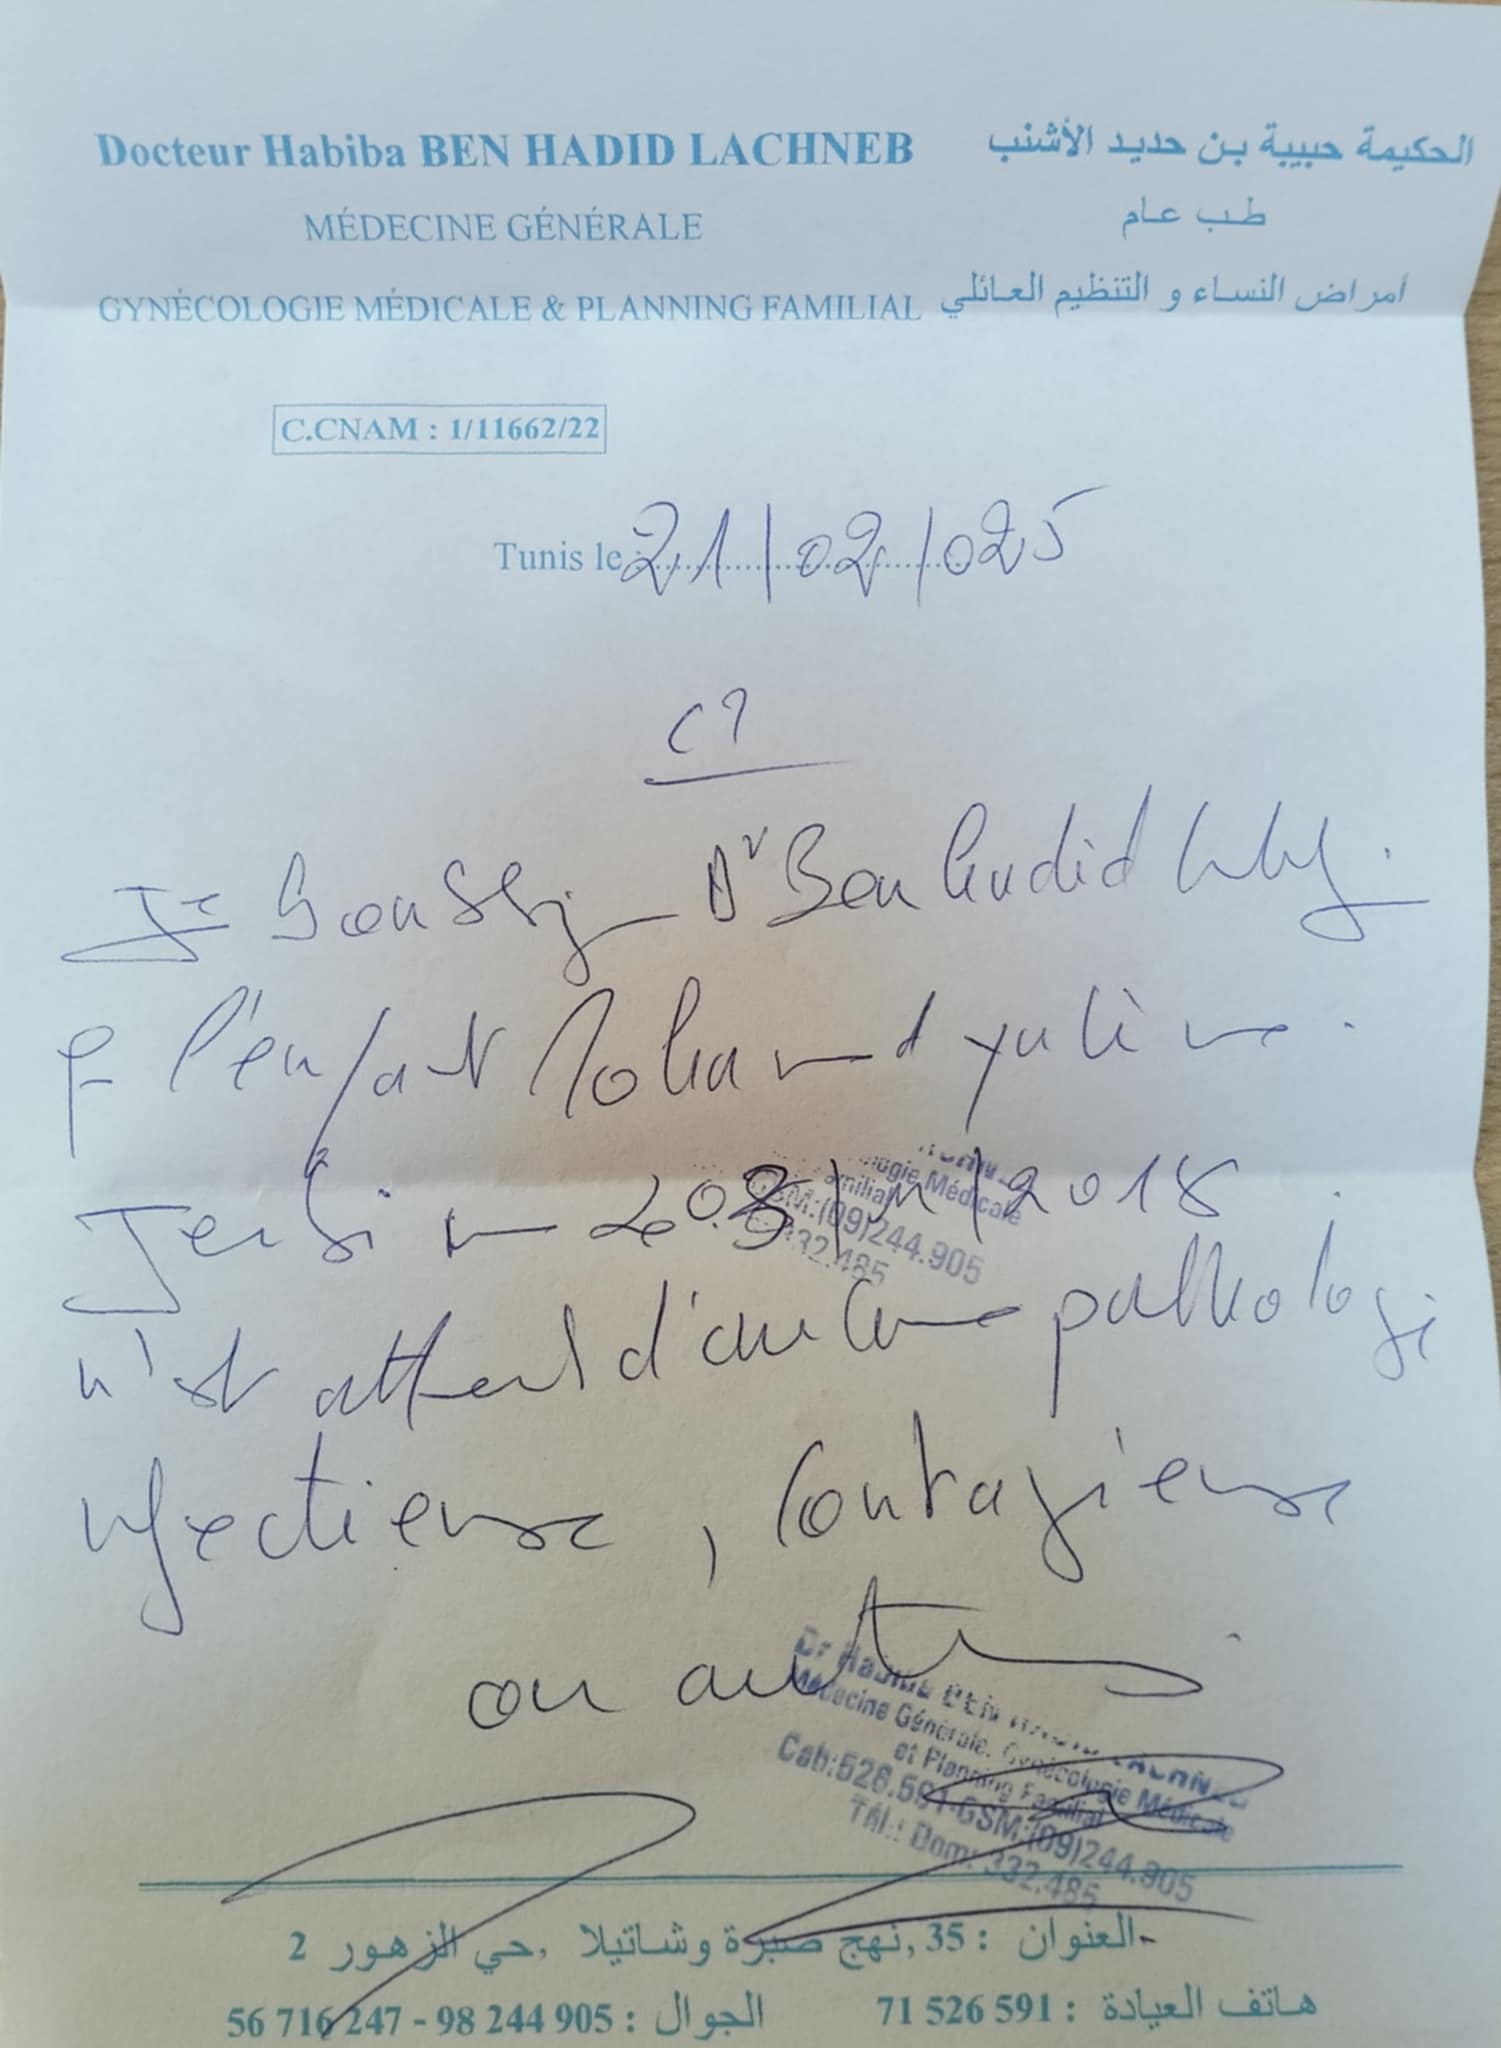 Docteur Habiba BEN HADID LACHNEB
الحكيمة حبيبة بن حديد الأشنب
MÉDECINE GÉNÉRALE
طب عام
GYNÉCOLOGIE MÉDICALE & PLANNING FAMILIAL
أمراض النساء و التنظيم العائلي
C.CNAM : 1/11662/22
Tunis le : 21/02/025
Je Soussig Dr Ben Hadid
l'enfant Mohamed
2018
ogie Médicale
amilial
GSM:(09)244.905
332.485
n'est atteint d'aucune pathologi
infectieuse, Contagieuse
ou autres.
Dr Habiba BEN HADID LACHNEB
Médecine Générale, Gynécologie Médicale
et Planning Familial
Cab:526.591-GSM:(09)244.905
Tél.: Dom: 332.485
العنوان : 35, نهج صبرة وشاتيلا ,حي الزهور 2-
هاتف العيادة : 71 526 591 الجوال : 98 244 905 - 56 716 247